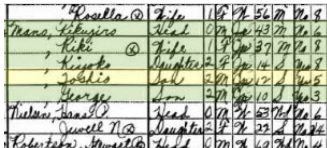 " Rosella ⓧ Wife 1 F W 56 M No 8
Mans, Kikujiro Head 0 M Ja 43 M No 6
", Kiki ⓧ Wife 1 F Ja 37 M No 8
", Kiyoko Daughter 2 F Ja 14 S No 8
", Toshio Son 2 M Ja 12 S Yes 5
", George Son 2 M Ja 10 S Yes 3
Nielsen, Hans P Head 0 M W 53 Wd No 6
", Jewell N ⓧ Daughter 2 F W 22 S No
Robertson, Stewart Head 0 M W No 8